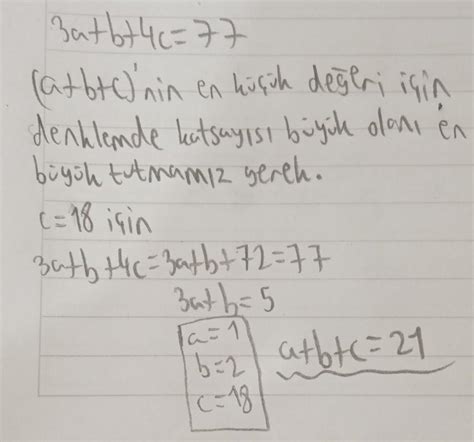 3a+b+4c=77
(a+b+c)'nin en küçük değeri için
denklemde katsayısı büyük olanı en
büyük tutmamız gerek.
c=18 için
3a+b+4c=3a+b+72=77
3a+b=5
a=1
b=2
c=18
a+b+c=21